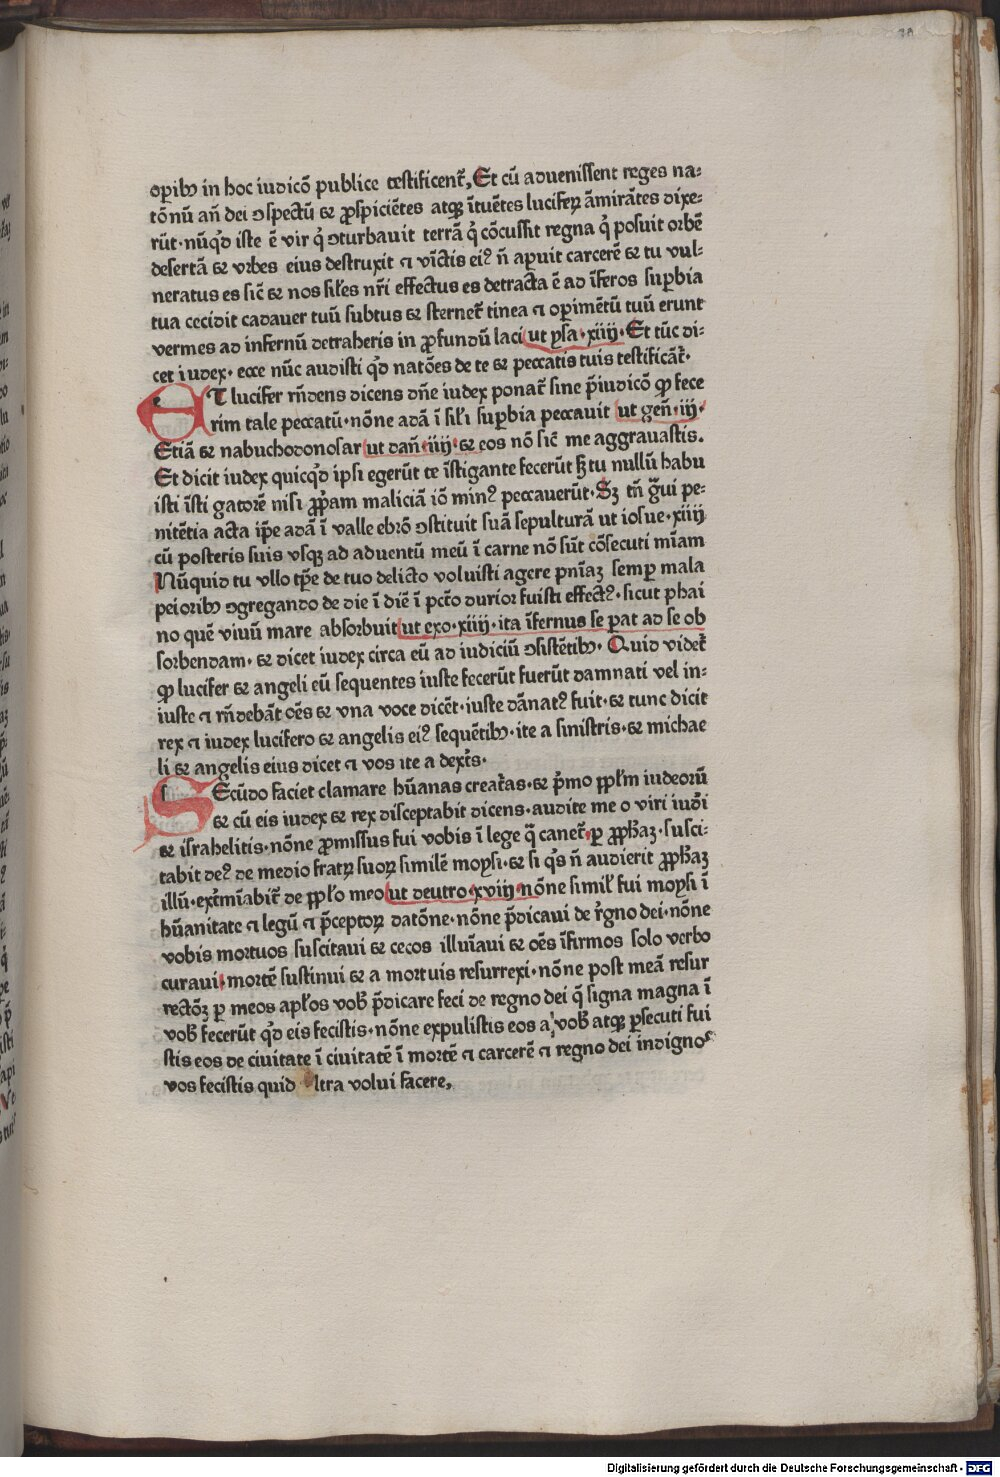 opibꝰ in hoc iudicō publice testificent̄, Et cū advenissent reges na⸗
tōnū an̄ dei ↄspectū & ꝓspiciētes atqꝫ ītuētes luciferꝝ āmirātes dixe⸗
rūt· nūqͥd iste ē vir qͥ ↄturbauit terrā qͥ cōcussit regna qͥ posuit orbē
desertā & vrbes eius destruxit ⁊ vīctis eiꝰ n̄ apuit carcerē & tu vul⸗
neratus es sic̄ & nos sil̄es nr̄i effectus es detracta ē ad īferos supbia
tua cecidit cadauer tuū subtus & sternet̄ tinea ⁊ opimētū tuū erunt
vermes ad infernū detraheris in ꝓfundū laci ut ysa· xiiij· Et tūc di⸗
cet iudex· ecce nūc audisti qͥd natōes de te & peccatis tuis testificāt̄·
ET lucifer rn̄dens dicens dn̄e iudex ponat̄ sine p̄iudicō ꝙ fece
rim tale peccatū· nōne adā ī sil̄i supbia peccauit ut gen̄· iij·
Etiā & nabuchodonosar ut dan̄· iiij· & eos nō sic̄ me aggrauastis.
Et dicit iudex quicqͥd ipsi egerūt te īstigante fecerūt hꝫ tu nullū habu
isti īsti gatorē nisi ꝓp̄am maliciā iō minꝰ peccauerūt· Sꝫ tn̄ gͣui pe⸗
nitētia acta ip̄e adā ī valle ebrō ↄstituit suā sepulturā ut iosue· xiiij
cū posteris suis vsqꝫ ad aduentū meū ī carne nō sūt cōsecuti mīam
Nūquid tu vllo tp̄e de tuo delicto voluisti agere pn̄iaꝫ semp mala
peioribꝰ ↄgregando de die ī diē ī pct̄o durior fuisti effectꝰ· sicut phai
no quē viuū mare absorbuit ut exo· xiiij· ita īfernus se pat ad se ob
sorbendam· & dicet iudex circa eū ad iudiciū ↄsistētibꝰ· Quid videt̄
ꝙ lucifer & angeli eū sequentes iuste fecerūt fuerūt damnati vel in⸗
iuste ⁊ rn̄debāt oēs & vna voce dicēt· iuste dānatꝰ fuit· & tunc dicit
rex ⁊ iudex lucifero & angelis eiꝰ sequētibꝰ· ite a sinistris· & michae
li & angelis eius dicet ⁊ vos ite a dext̄s·
SEcūdo faciet clamare hūanas creat̄as· & p̄mo ppl̄m iudeorū
& cū eis iudex & rex disceptabit dicens· audite me o viri iud̄i
& israhelitis· nōne ꝓmissus fui vobis ī lege q̄ canet̄ p ꝓph̄aꝫ· susci⸗
tabit deꝰ de medio fratꝝ suoꝝ similē moysi· & si qͥs n̄ audierit ꝓph̄aꝫ
illū· ext̄mīabit̄ de ppl̄o meo ut deutro· xviij nōne simil̄ fui moysi ī
hūanitate ⁊ legū ⁊ p̄ceptoꝝ datōne· nōne p̄dicaui de r̄gno dei· nōne
vobis mortuos suscitaui & cecos illuīaui & oēs īfirmos solo verbo
curaui· mortē sustinui & a mortuis resurrexi· nōne post meā resur
rectōꝫ p meos apl̄os vob̄ p̄dicare feci de regno dei q̄ signa magna ī
vob̄ fecerūt qͥd eis fecistis· nōne expulistis eos a vob̄ atqꝫ psecuti fui
stis eos de ciuitate ī ciuitatē ī mortē ⁊ carcerē ⁊ regno dei indignoˢ
vos fecistis quid ltra volui facere,
Digitalisierung gefördert durch die Deutsche Forschungsgemeinschaft - DFG